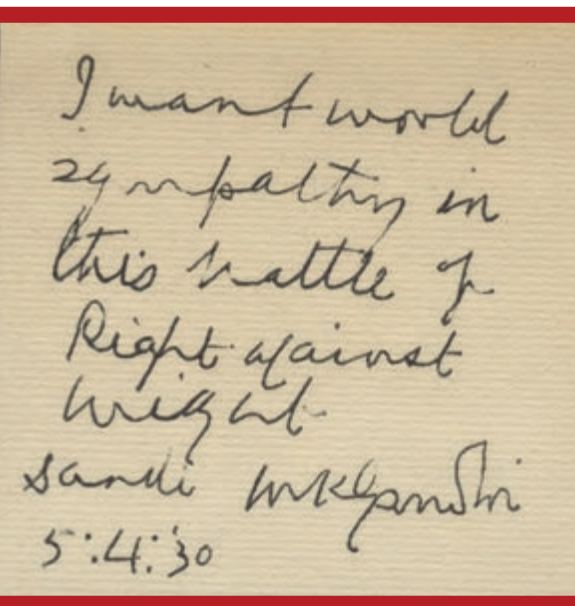 I want world
sympathy in
this battle of
Right against
might
Dandi MKGandhi
5:4:'30